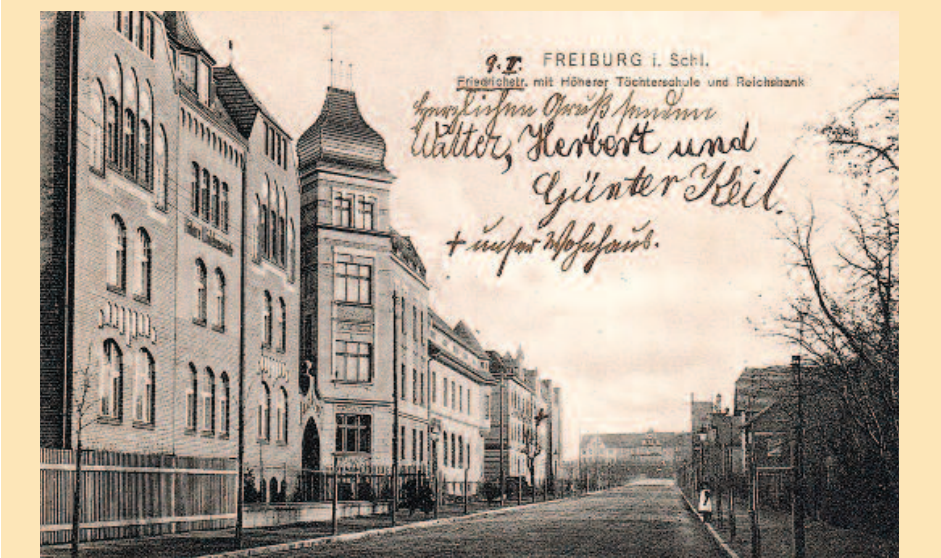 9. V. FREIBURG i. Schl.
Friedrichstr. mit Höherer Töchterschule und Reichsbank
Herzlichen Gruß senden
Walter, Herbert und
Günter Keil.
+ unser Wohnhaus.